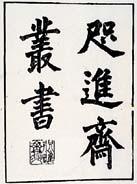 咫進齋
叢書